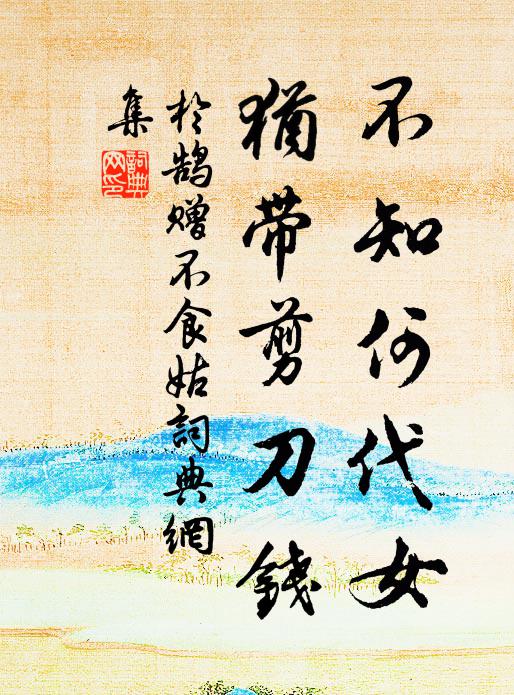 不知何代女
猶帶剪刀錢
於鵠贈不食姑詞典網
集
詞典
网印